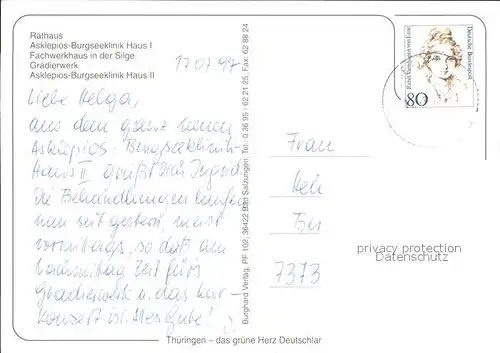 Rathaus
Asklepios-Burgseeklinik Haus I
Fachwerkhaus in der Silge
Gradierwerk
Asklepios-Burgseeklinik Haus II
Liebe Helga,
aus dem ganz neuen
Asklepios-Burgseeklinik-
Haus II grüßt Dich Ingrid
Die Behandlungen laufen
nun seit gestern, meist
vormittags, so daß am
Nachmittag Zeit fürs
Gradierwerk u. das Kur-
Konzert ist. Alles Gute!
Burghard Verlag, PF 102, 36422 Bad Salzungen, Tel.: 0 36 95 - 62 21 25, Fax: 62 88 24
Deutsche Bundespost
80
Frau
Hel
7373
privacy protection
Datenschutz
Thüringen – das grüne Herz Deutschlan